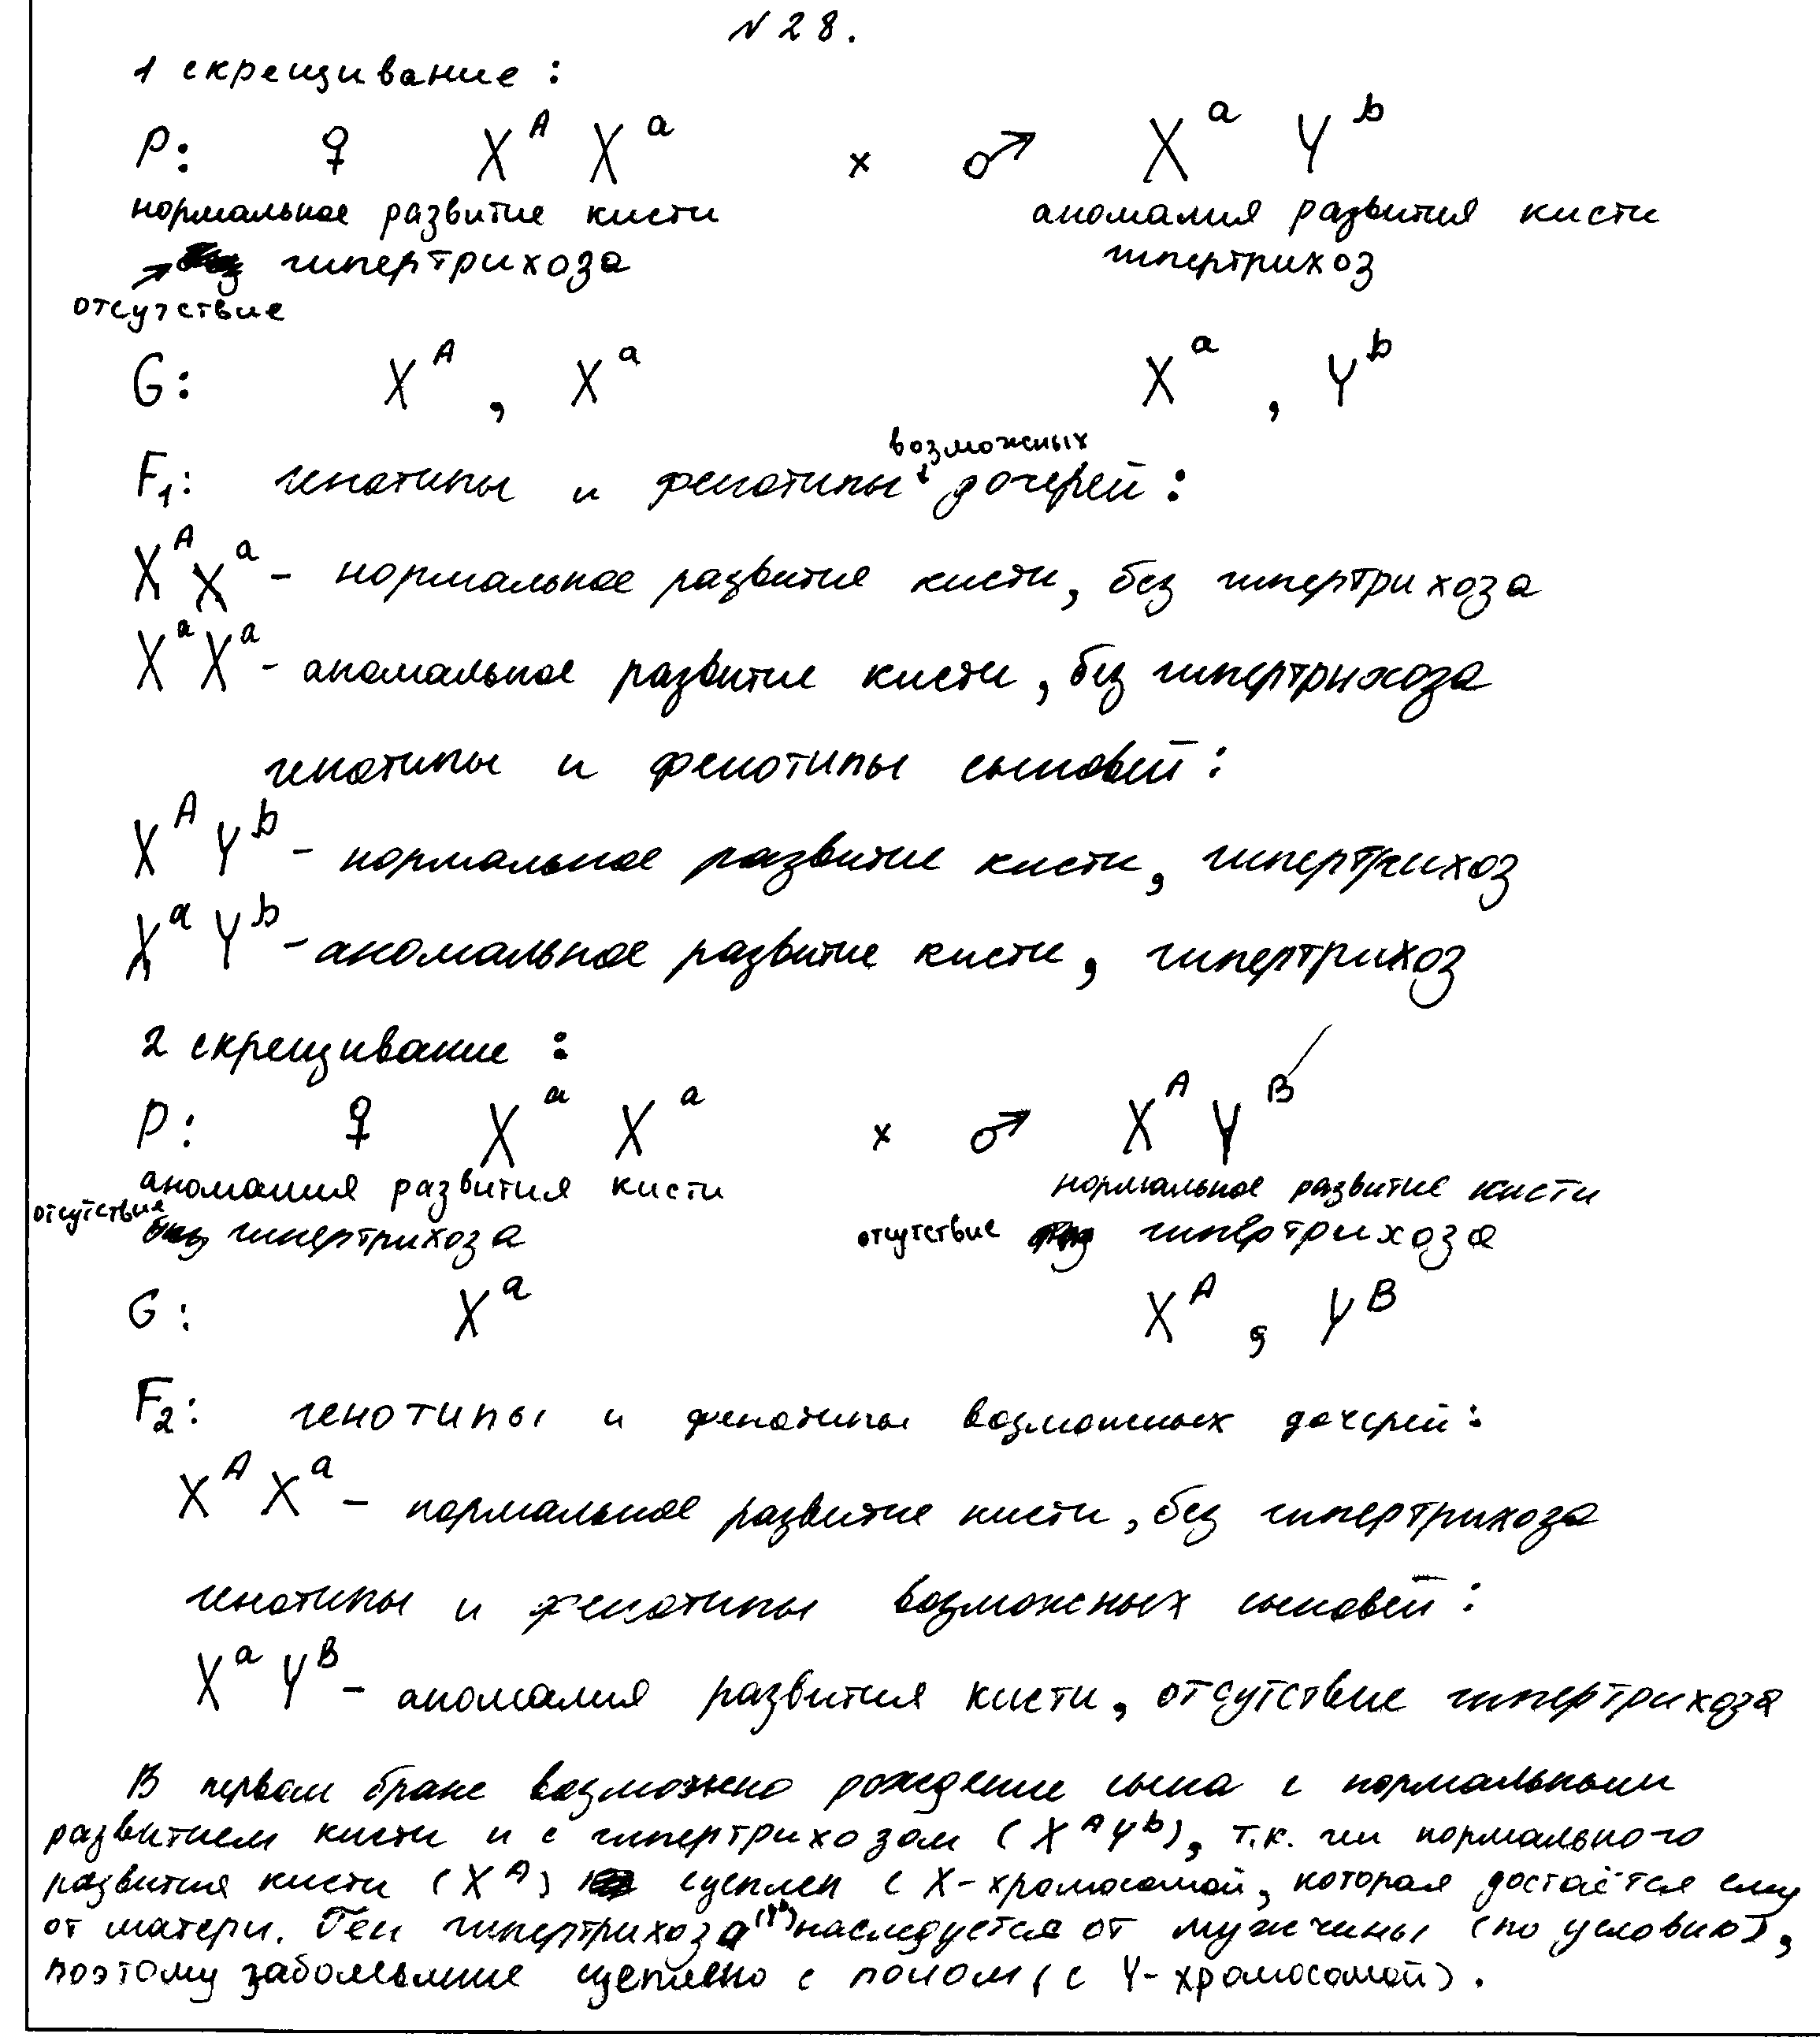 N 28.
1 скрещивание :
P: ♀ X^A X^a × ♂ X^a Y^b
нормальное развитие кисти аномалия развития кисти
гипертрихоза гипертрихоз
отсутствие
G: X^A , X^a X^a , Y^b
возможных
F₁: генотипы и фенотипы дочерей :
X^A X^a - нормальное развитие кисти, без гипертрихоза
X^a X^a - аномальное развитие кисти, без гипертрихоза
генотипы и фенотипы сыновей :
X^A Y^b - нормальное развитие кисти, гипертрихоз
X^a Y^b - аномальное развитие кисти, гипертрихоз
2 скрещивание :
P: ♀ X^a X^a × ♂ X^A Y^B
аномалия развития кисти нормальное развитие кисти
отсутствие гипертрихоза отсутствие гипертрихоза
G: X^a X^A , Y^B
F₂: генотипы и фенотипы возможных дочерей:
X^A X^a - нормальное развитие кисти, без гипертрихоза
генотипы и фенотипы возможных сыновей :
X^a Y^B - аномалия развития кисти, отсутствие гипертрихоза
В первом браке возможно рождение сына с нормальным
развитием кисти и с гипертрихозом (X^A Y^b), т.к. ген нормального
развития кисти (X^A) сцеплен с X-хромосомой, которая достаётся ему
от матери. Ген гипертрихоза (Y^b) наследуется от мужчины (по условию),
поэтому заболевание сцеплено с полом (с Y-хромосомой).